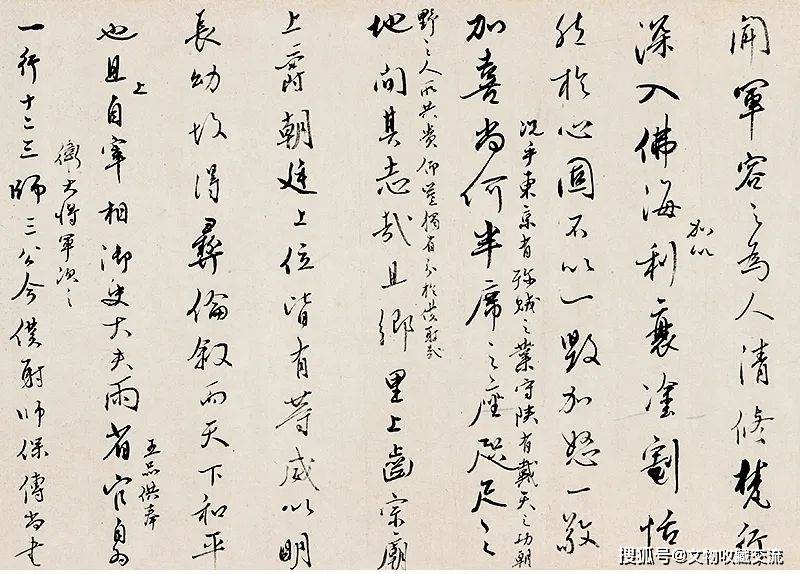 聞軍容之為人清修梵行
深入佛海利衰塗割恬
加以
然於心固不以一毀加怒一敬
況乎東京有殄賊之業守陝有戴天之功朝
加喜尚何半席之座咫尺之
野之人所共貴仰豈獨有分於僕射哉
地間其志哉且鄉里上齒宗廟
上爵朝廷上位皆有等威以明
長幼故得彝倫叙而天下和平
五品供奉
也且自宰相御史大夫兩省官自為
上
衛大將軍次之
一行十二三師三公令僕射師保傅尚書
搜狐号@文物收藏交流